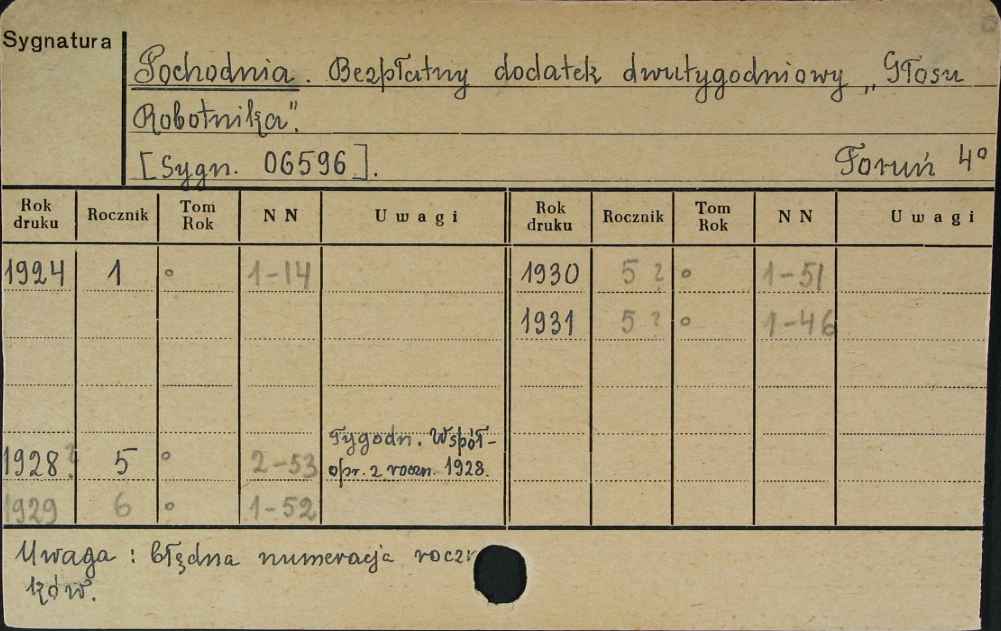 Sygnatura
Pochodnia. Bezpłatny dodatek dwutygodniowy „Głosu
Robotnika".
[Sygn. 06596]. Toruń 4°
Rok druku Rocznik Tom Rok N N Uwagi Rok druku Rocznik Tom Rok N N Uwagi
1924 1 ° 1-14 1930 5? ° 1-51
1931 5? ° 1-46
Tygodn. Współ-
1928? 5 ° 2-53 opr. z roczn. 1928.
1929 6 ° 1-52
Uwaga: błędna numeracja roczn
ków.